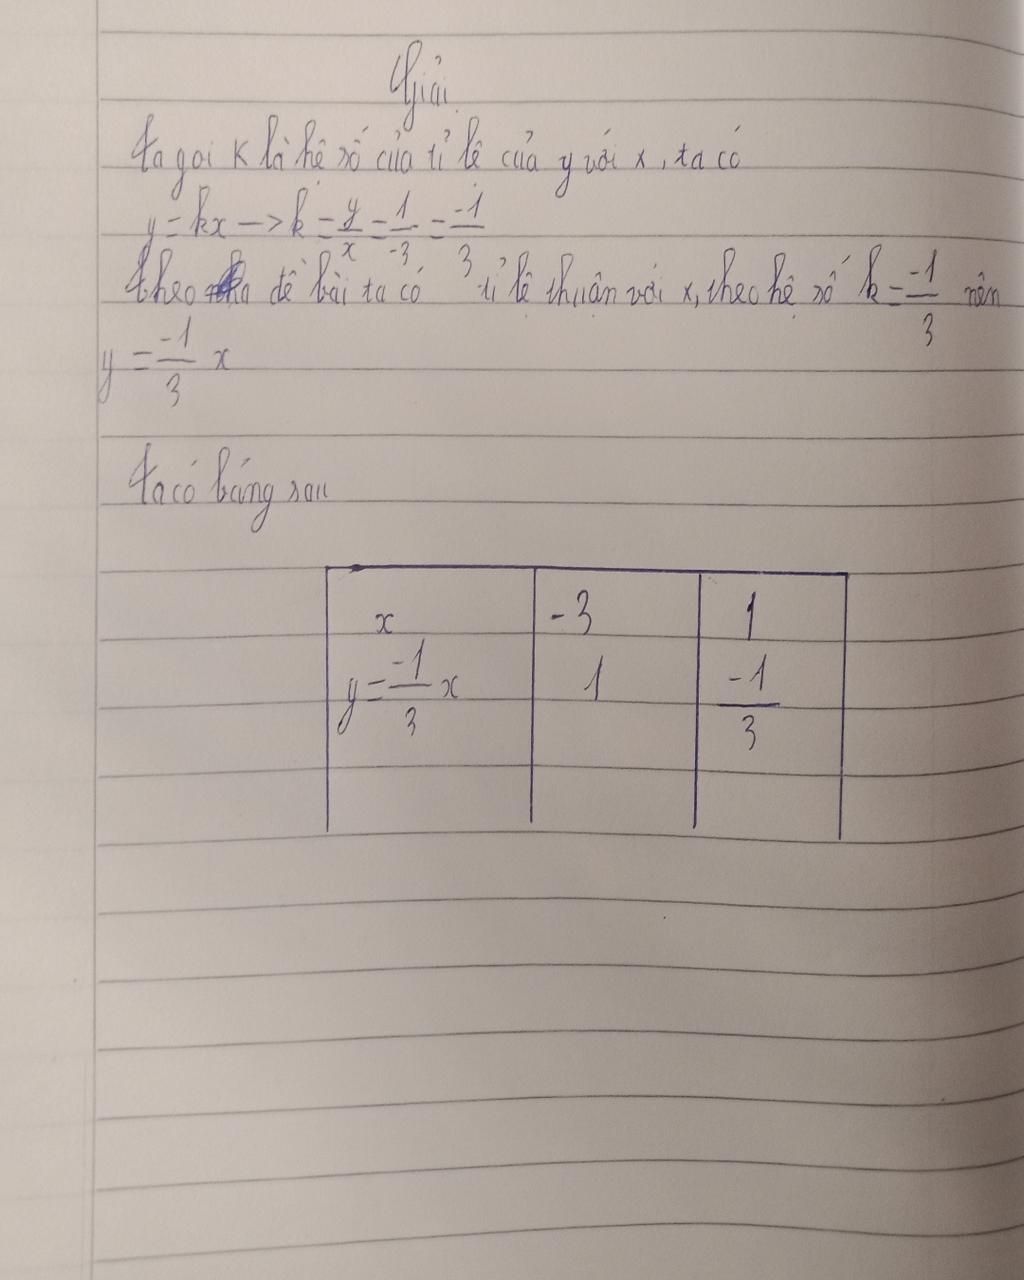 Giải
ta gọi K là hệ số của tỉ lệ của y với x, ta có
y = kx -> k = y/x = 1/-3 = -1/3
theo đề bài ta có tỉ lệ thuận với x, theo hệ số k = -1/3 nên
y = -1/3 x
ta có bảng sau
x -3 1
y = -1/3 x 1 -1/3